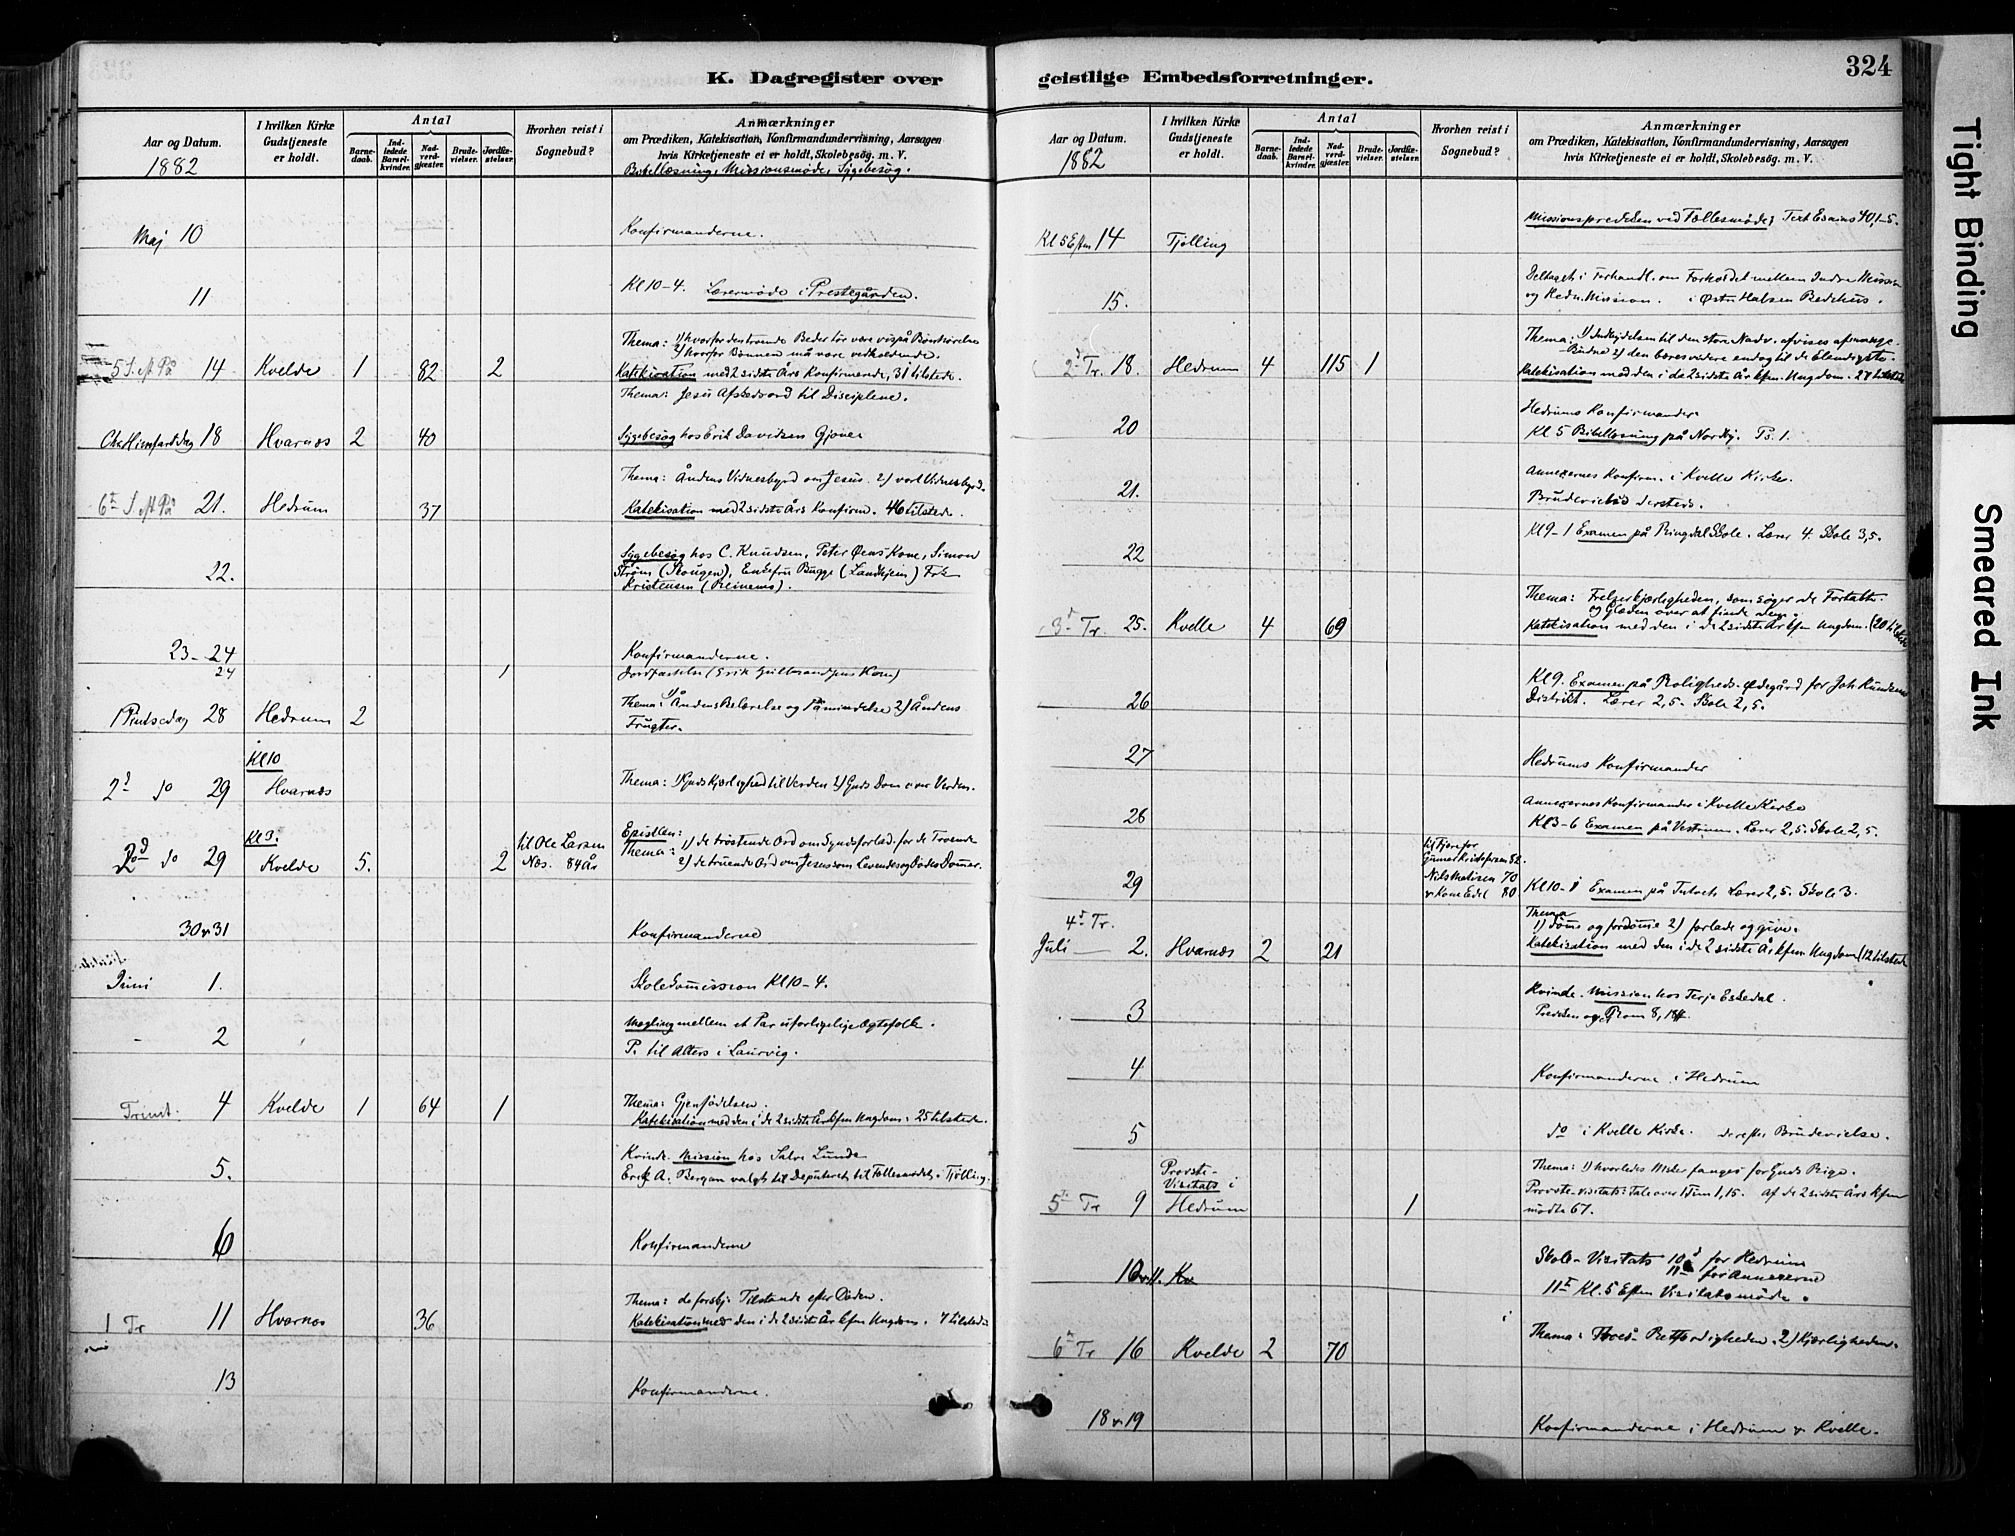 K. Dagregister over
Aar og Datum.
1882
I hvilken Kirke Gudstjeneste er holdt.
Antal
Barnedaab.
Indledede Barselkvinder.
Nadverdgjæster.
Brudevielser.
Jordfæstelser.
Hvorhen reist i Sognebud?
Anmærkninger
om Prædiken, Katekisation, Konfirmandundervisning, Aarsagen
hvis Kirketjeneste ei er holdt, Skolebesøg. m. V.
Bibellæsning, Missionsmøde, Sygebesøg.
Maj 10 Konfirmanderne.
11 Kl 10-4. Lærermøde i Prestegården.
Thema: 1) hvorfor den troende Beder tør være vis på Bønhørelse
2) hvorfor Bønnen må være vedholdende.
5 S. eft På 14 Kvelde 1 82 2 Katekisation med 2 sidste Års Konfirmerede, 31 tilstede.
Thema: Jesu Afskedsord til Disciplene.
Chr Himfartsdag 18 Hvarnæs 2 40 Sygebesøg hos Erik Davidsen Gjone
Thema: Åndens Vidnesbyrd om Jesus. 2) vort Vidnesbyrd.
6te S eft På 21. Hedrum 37 Katekisation med 2 sidste Års Konfirm. 46 tilstede.
22. Sygebesøg hos C. Knudsen, Peter Kone, Simon
Strøm (Skougen), Enkefru Bugge (Landhjem) Frk
Kristensen (Reinems).
23-24 Konfirmanderne.
24 1 Jordfæstelse (Erik Gulbrandsens Kone)
Pindsedag 28 Hedrum 2 Thema: 1) Åndens Belærelse og Påmindelse 2) Åndens
Frugter.
Kl 10
2d do 29 Hvarnæs Thema: 1) Guds Kjærlighed til Verden 2) Guds Dom over Verden.
Kl 3.
2d do 29 Kvelde 5. 2 til Ole Larsen
Næs. 84 År
Epistlen:
Thema: 1) de trøstende Ord om Syndsforlad. for de Troende
2) de truende Ord om Jesus som Levendes og Dødes Dommer.
30 & 31 Konfirmanderne
Juni 1. Skolecommission Kl 10-4.
2 Mægling mellem et Par uforligelige Ægtefolk.
P. til Alters i Laurvig.
Trinit. 4 Kvelde 1 64 1 Thema: Gjenfødelsen.
Katekisation med den i de 2 sidste År kfm Ungdom. 25 tilstede.
5. Kvinde Mission hos Salve Lunde
Erik A. Bergan valgt til Deputeret til Fællesmødet i Tjølling.
6 Konfirmanderne
Thema: de forskj. Tilstande efter Døden.
1 Tr 11 Hvarnæs 36 Katekisation med den i de 2 sidste År kfm Ungdom. 7 tilstede
13 Konfirmanderne.
geistlige Embedsforretninger.
324
Aar og Datum.
1882
I hvilken Kirke Gudstjeneste er holdt.
Antal
Barnedaab.
Indledede Barselkvinder.
Nadverdgjæster.
Brudevielser.
Jordfæstelser.
Hvorhen reist i Sognebud?
Anmærkninger
om Prædiken, Katekisation, Konfirmandundervisning, Aarsagen
hvis Kirketjeneste ei er holdt, Skolebesøg. m. V.
Kl 5 Eftm 14 Tjølling Missionspredeken ved Fællesmøde; Text Esaias 40, 1-5.
15. Deltaget i Forhandl. om Forholdet mellem Indre Mission
og Hedn. Mission. i Østre Halsen Bedehus.
Thema: 1) Indbydelsen til den store Nadv. afvises af mange
Budne 2) den bæres videre endog til de Elendigste.
2d Tr. 18. Hedrum 4 115 1 Katekisation med den i de 2 sidste År kfm. Ungdom. 27 tilstede
20 Hedrums Konfirmander
Kl 5 Bibellæsning på Nordby. Ps. 1.
21. Annexernes Konfirm. i Kvelle Kirke.
Brudevielse dersteds.
22 Kl 9-1 Examen på Ringdal Skole. Lærer 4. Skole 3,5.
Thema: Frelserkjærligheden, som søger de Fortabte.
og Glæden over at finde dem.
3d Tr. 25. Kvelle 4 69 Katekisation med den i de 2 sidste År kfm Ungdom. (20 tilstede
26 Kl 9. Examen på Roligheds-Ødegård for Joh Knudsens
Distrikt. Lærer 2,5. Skole 2,5.
27 Hedrums Konfirmander
28 Annexernes Konfirmander i Kvelle Kirke
Kl 3-6 Examen på Vestrum. Lærer 2,5. Skole 2,5.
29 til
Gunner Kristofersen 82.
Nils Matisen 70
& Kone Edel 80
Kl 10-1 Examen på Tutvet. Lærer 2,5. Skole 3.
4d Tr.
Juli 2. Hvarnæs 2 21 Thema
1) dømme og fordømme 2) forlade og give.
Katekisation med den i de 2 sidste År kfm Ungdom (12 tilstede
3 Kvinde-Mission hos Terje Eskedal.
Predeken over Rom 8, 18ff.
4 Konfirmanderne i Hedrum
5 do i Kvelle Kirke. derefter Brudevielse.
Provste-
Visitats i
5te Tr 9 Hedrum 1 Thema: 1) hvorledes Mister fanges for Guds Rige.
Provste-visitats: Tale over 1 Tim 1, 15. af de 2 sidste Års kfm
mødte 67.
10 & 11. Kv Skole-Visitats 10d for Hedrum
11te for Annexerne
11te Kl. 5 Eftm Visitatsmøde.
6te Tr 16 Kvelde 2 70 Thema: Retfærdigheden. 2) Kjærligheden.
18 & 19 Konfirmanderne i Hedrum & Kvelle.
Tight Binding
Smeared Ink